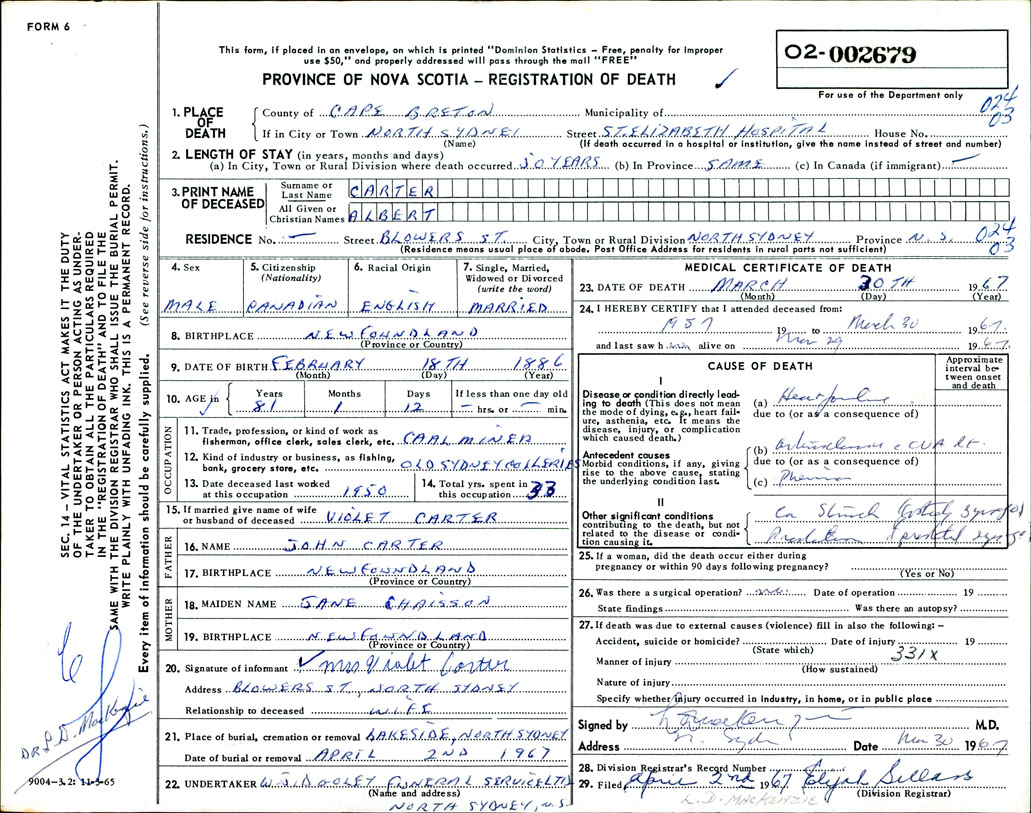 FORM 6
This form, if placed in an envelope, on which is printed "Dominion Statistics – Free, penalty for improper
use $50," and properly addressed will pass through the mail "FREE"
PROVINCE OF NOVA SCOTIA – REGISTRATION OF DEATH ✓
02-002679
For use of the Department only
024
03
1. PLACE OF DEATH
County of CAPE BRETON Municipality of
If in City or Town NORTH SYDNEY Street ST. ELIZABETH HOSPITAL House No.
(Name) (If death occurred in a hospital or institution, give the name instead of street and number)
2. LENGTH OF STAY (in years, months and days)
(a) In City, Town or Rural Division where death occurred 50 YEARS (b) In Province SAME (c) In Canada (if immigrant) —
3. PRINT NAME OF DECEASED
Surname or Last Name CARTER
All Given or Christian Names ALBERT
RESIDENCE No. — Street BLOWERS ST. City, Town or Rural Division NORTH SYDNEY Province N.S. 024
03
(Residence means usual place of abode. Post Office Address for residents in rural parts not sufficient)
4. Sex
MALE
5. Citizenship (Nationality)
CANADIAN
6. Racial Origin
ENGLISH
7. Single, Married, Widowed or Divorced (write the word)
MARRIED
8. BIRTHPLACE NEWFOUNDLAND
(Province or Country)
9. DATE OF BIRTH FEBRUARY 18TH 1886
(Month) (Day) (Year)
10. AGE in Years Months Days If less than one day old
81 1 12 — hrs. or — min.
OCCUPATION
11. Trade, profession, or kind of work as
fisherman, office clerk, sales clerk, etc. COAL MINER
12. Kind of industry or business, as fishing,
bank, grocery store, etc. OLD SYDNEY COLLERIES
13. Date deceased last worked
at this occupation 1950
14. Total yrs. spent in
this occupation 33
15. If married give name of wife
or husband of deceased VIOLET CARTER
FATHER
16. NAME JOHN CARTER
17. BIRTHPLACE NEWFOUNDLAND
(Province or Country)
MOTHER
18. MAIDEN NAME JANE CHAISSON
19. BIRTHPLACE NEWFOUNDLAND
(Province or Country)
20. Signature of informant ✓ Mrs Violet Carter
Address BLOWERS ST., NORTH SYDNEY
Relationship to deceased WIFE
21. Place of burial, cremation or removal LAKESIDE, NORTH SYDNEY
Date of burial or removal APRIL 2ND 1967
22. UNDERTAKER W.J. DOOLEY FUNERAL SERVICE LTD
(Name and address)
NORTH SYDNEY, N.S.
MEDICAL CERTIFICATE OF DEATH
23. DATE OF DEATH MARCH 30TH 1967
(Month) (Day) (Year)
24. I HEREBY CERTIFY that I attended deceased from:
1957 19 to March 30 1967
and last saw h alive on Mar 29 1967
CAUSE OF DEATH
Approximate interval between onset and death
I
Disease or condition directly leading to death (This does not mean
the mode of dying, e.g., heart failure, asthenia, etc. It means the
disease, injury, or complication
which caused death.)
(a) Heart failure
due to (or as a consequence of)
Antecedent causes
Morbid conditions, if any, giving
rise to the above cause, stating
the underlying condition last.
(b) CVA Rt.
due to (or as a consequence of)
(c)
II
Other significant conditions
contributing to the death, but not
related to the disease or condition causing it.
25. If a woman, did the death occur either during
pregnancy or within 90 days following pregnancy?
(Yes or No)
26. Was there a surgical operation? Date of operation 19
State findings Was there an autopsy?
27. If death was due to external causes (violence) fill in also the following: –
Accident, suicide or homicide? Date of injury 19
(State which) 331X
Manner of injury
(How sustained)
Nature of injury
Specify whether injury occurred in industry, in home, or in public place
Signed by L D MacKenzie M.D.
Address N. Sydney Date Mar 30 1967
28. Division Registrar's Record Number
29. Filed April 2nd 1967 Elijah Sellars
(Division Registrar)
L.D. MACKENZIE
SEC. 14 – VITAL STATISTICS ACT MAKES IT THE DUTY
OF THE UNDERTAKER OR PERSON ACTING AS UNDER-
TAKER TO OBTAIN ALL THE PARTICULARS REQUIRED
IN THE "REGISTRATION OF DEATH" AND TO FILE THE
SAME WITH THE DIVISION REGISTRAR WHO SHALL ISSUE THE BURIAL PERMIT.
WRITE PLAINLY WITH UNFADING INK. THIS IS A PERMANENT RECORD.
Every item of information should be carefully supplied. (See reverse side for instructions.)
DR L. D. MacKenzie
9004-3.2: 11-3-65